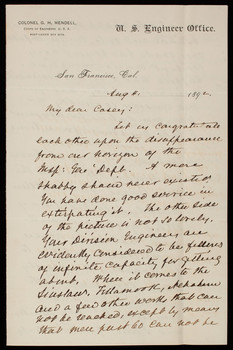 COLONEL G. H. MENDELL,
CORPS OF ENGINEERS, U.S.A.
U. S. Engineer Office.
San Francisco, Cal.
Aug 8. 1892.
My dear Casey:
Let us congratulate
each other upon the disappearance
from our horizon of the
Insp: Gens' Dept. A more
shabby sham never existed.
You have done good service in
extirpating it. The other side
of the picture is not so lovely.
Your Division Engineers are
evidently considered to be fellows
of infinite capacity for getting
about. When it comes to the
Siuslaw, Tillamook, Nehalem
and a few other works that can
not be reached, except by means
that men past 60 can not be